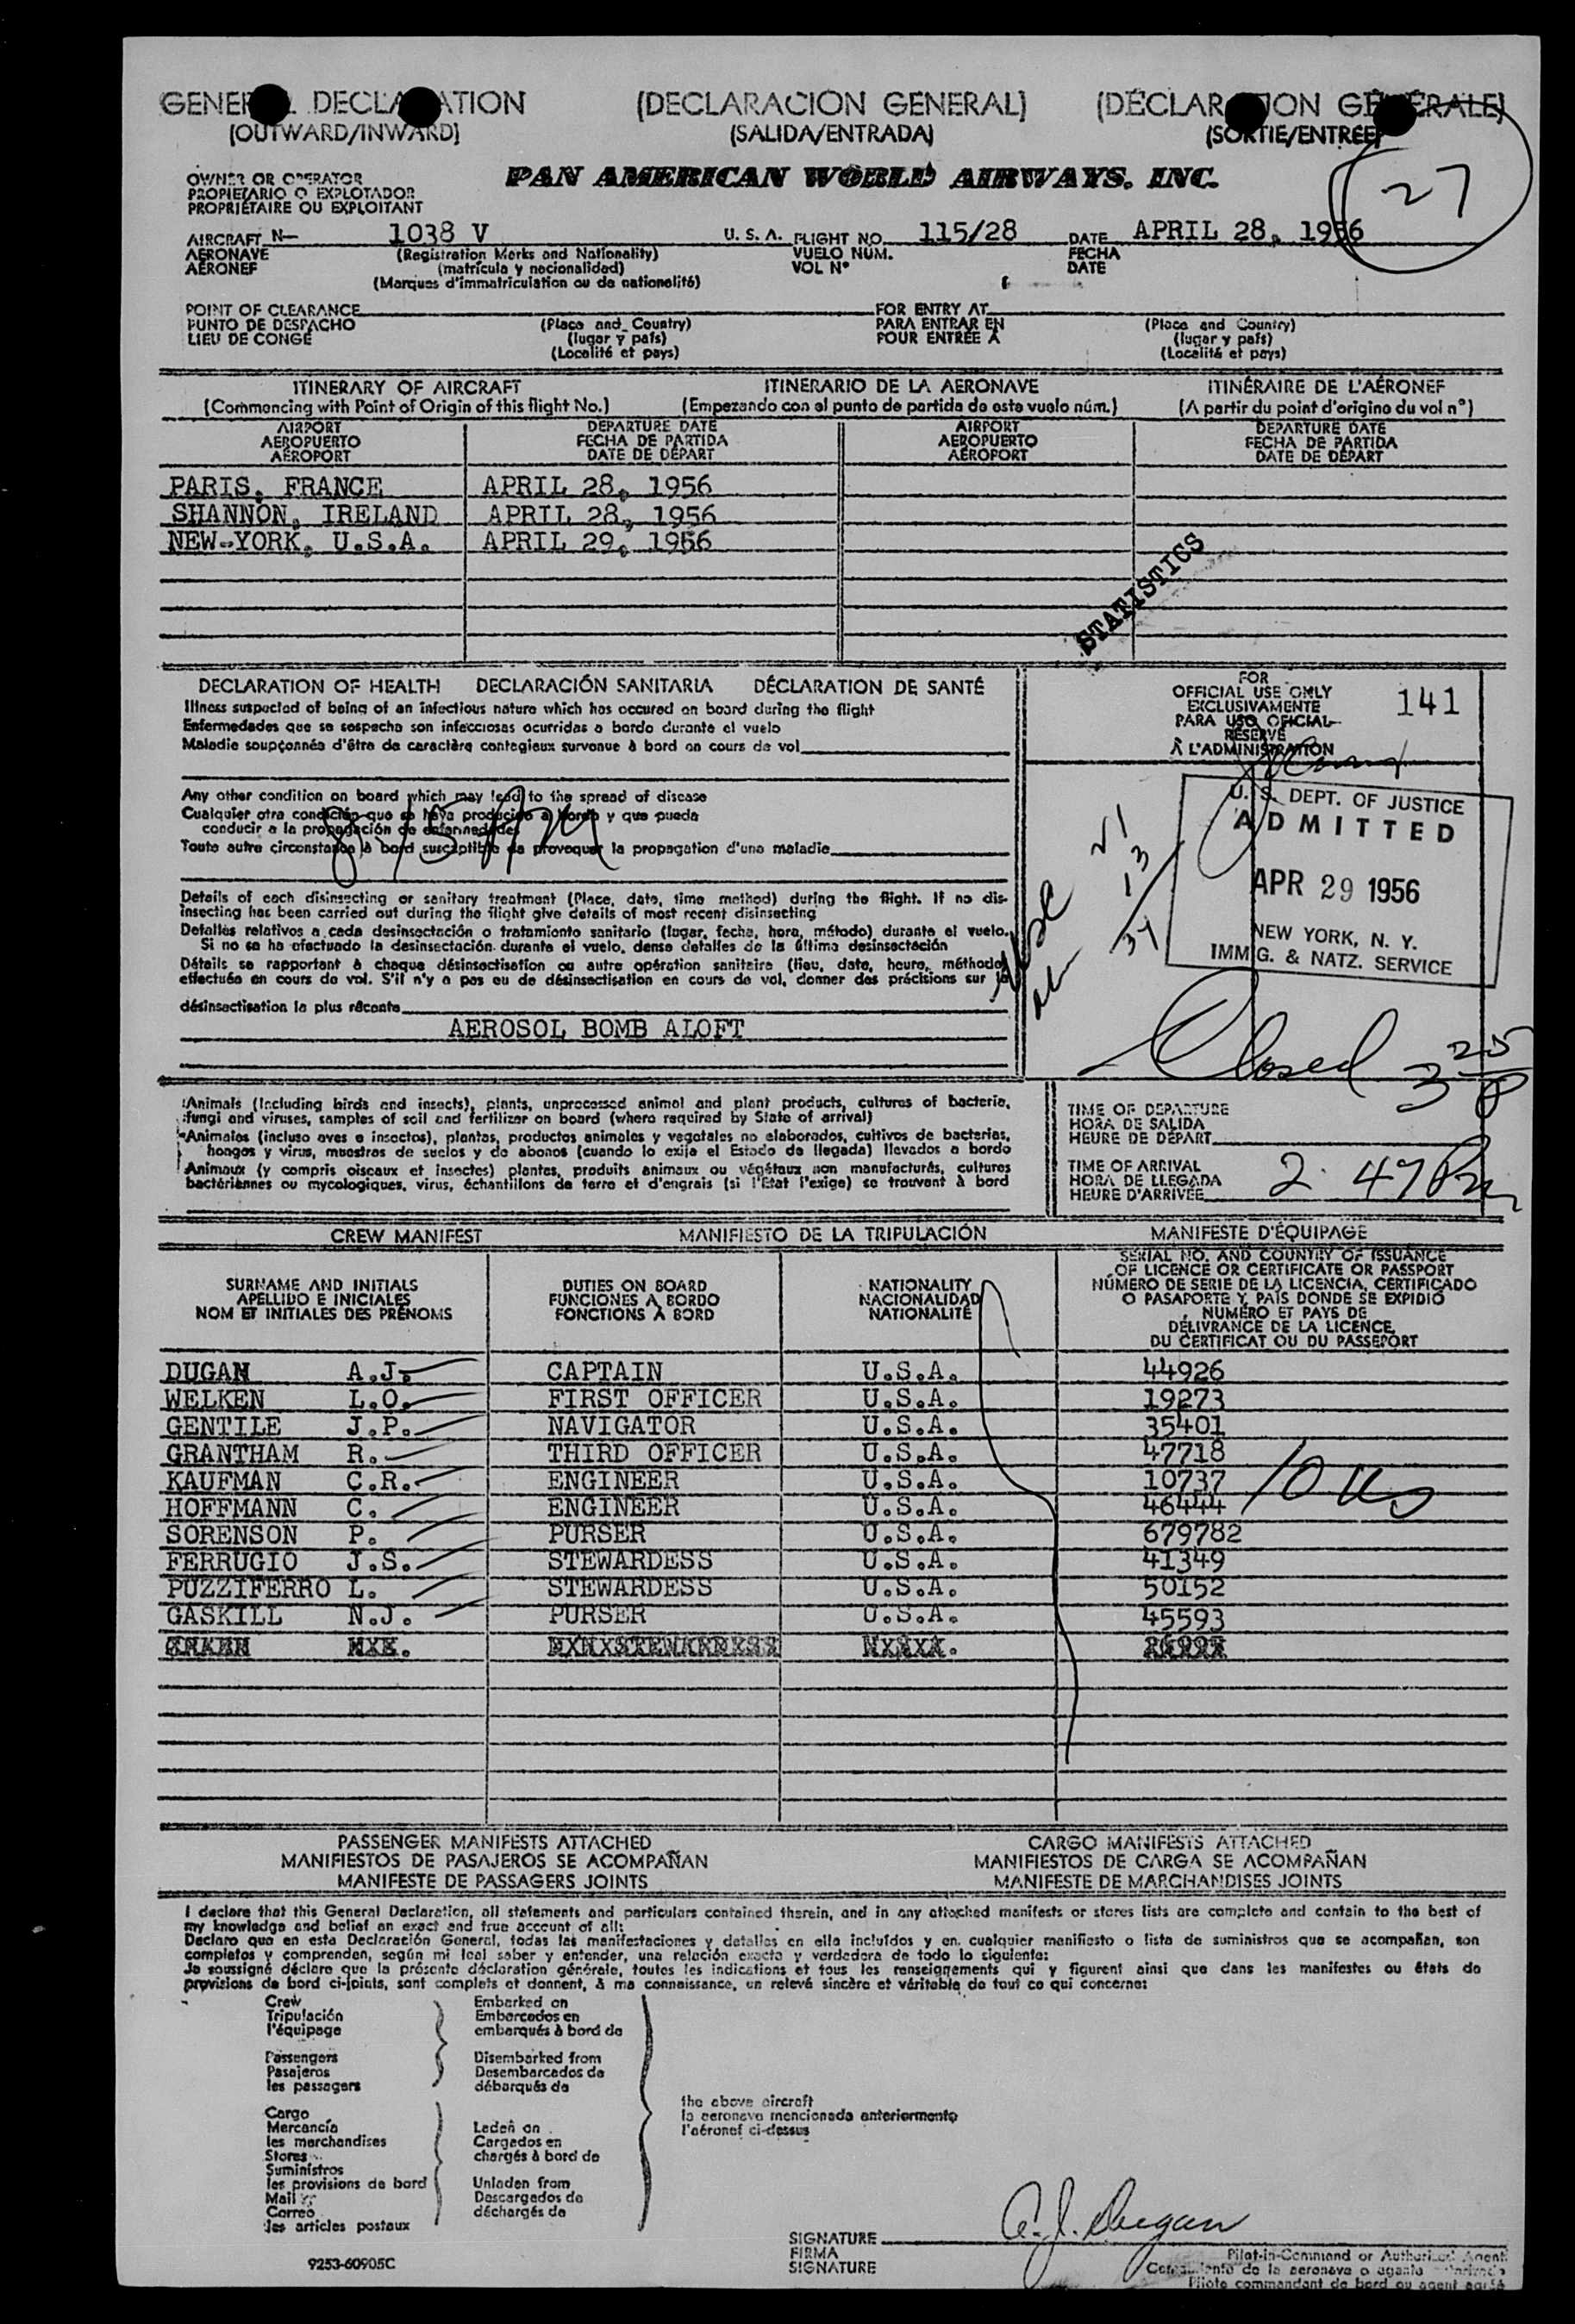 GENERAL DECLARATION (DECLARACION GENERAL) (DÉCLARATION GÉNÉRALE)
(OUTWARD/INWARD) (SALIDA/ENTRADA) (SORTIE/ENTRÉE)
27
OWNER OR OPERATOR
PROPIETARIO O EXPLOTADOR
PROPRIÉTAIRE OU EXPLOITANT
PAN AMERICAN WORLD AIRWAYS, INC.
AIRCRAFT N— 1038 V U. S. A. FLIGHT NO. 115/28 DATE APRIL 28, 1956
AERONAVE (Registration Marks and Nationality) VUELO NÚM. FECHA
AÉRONEF (matrícula y nacionalidad) VOL Nº DATE
(Marques d'immatriculation ou de nationalité)
POINT OF CLEARANCE FOR ENTRY AT
PUNTO DE DESPACHO (Place and Country) PARA ENTRAR EN (Place and Country)
LIEU DE CONGÉ (lugar y país) POUR ENTRÉE À (lugar y país)
(Localité et pays) (Localité et pays)
ITINERARY OF AIRCRAFT ITINERARIO DE LA AERONAVE ITINÉRAIRE DE L'AÉRONEF
(Commencing with Point of Origin of this flight No.) (Empezando con el punto de partida de este vuelo núm.) (A partir du point d'origine du vol nº)
AIRPORT DEPARTURE DATE AIRPORT DEPARTURE DATE
AEROPUERTO FECHA DE PARTIDA AEROPUERTO FECHA DE PARTIDA
AÉROPORT DATE DE DÉPART AÉROPORT DATE DE DÉPART
PARIS, FRANCE APRIL 28, 1956
SHANNON, IRELAND APRIL 28, 1956
NEW-YORK, U.S.A. APRIL 29, 1956
STATISTICS
DECLARATION OF HEALTH DECLARACIÓN SANITARIA DÉCLARATION DE SANTÉ
Illness suspected of being of an infectious nature which has occured on board during the flight
Enfermedades que se sospecha son infecciosas ocurridas a bordo durante el vuelo
Maladie soupçonnés d'être de caractère contagieux survenue à bord en cours de vol
Any other condition on board which may lead to the spread of disease
Cualquier otra condición que se haya producido a bordo y que pueda
conducir a la propagación de enfermedades
Toute autre circonstance à bord susceptible de provoquer la propagation d'une maladie
8 15 AM
Details of each disinsecting or sanitary treatment (Place, date, time method) during the flight. If no dis-
insecting has been carried out during the flight give details of most recent disinsecting
Detalles relativos a cada desinsectación o tratamiento sanitario (lugar, fecha, hora, método) durante el vuelo.
Si no se ha efectuado la desinsectación durante el vuelo, dense detalles de la última desinsectación
Détails se rapportant à chaque désinsectisation ou autre opération sanitaire (lieu, date, heure, méthode)
effectuée en cours de vol. S'il n'y a pas eu de désinsectisation en cours de vol, donner des précisions sur la
désinsectisation la plus récente
AEROSOL BOMB ALOFT
FOR
OFFICIAL USE ONLY
EXCLUSIVAMENTE
PARA USO OFICIAL
RÉSERVÉ
À L'ADMINISTRATION
141
21
13
34
U. S. DEPT. OF JUSTICE
ADMITTED
APR 29 1956
NEW YORK, N. Y.
IMMIG. & NATZ. SERVICE
Closed 3 25 P
Animals (Including birds and insects), plants, unprocessed animal and plant products, cultures of bacteria,
fungi and viruses, samples of soil and fertilizer on board (where required by State of arrival)
Animales (incluso aves e insectos), plantas, productos animales y vegetales no elaborados, cultivos de bacterias,
hongos y virus, muestras de suelos y de abonos (cuando lo exija el Estado de llegada) llevados a bordo
Animaux (y compris oiseaux et insectes) plantes, produits animaux ou végétaux non manufacturés, cultures
bactériennes ou mycologiques, virus, échantillons de terre et d'engrais (si l'État l'exige) se trouvant à bord
TIME OF DEPARTURE
HORA DE SALIDA
HEURE DE DÉPART
TIME OF ARRIVAL
HORA DE LLEGADA
HEURE D'ARRIVÉE 2 47 Pm
CREW MANIFEST MANIFIESTO DE LA TRIPULACIÓN MANIFESTE D'ÉQUIPAGE
SURNAME AND INITIALS
APELLIDO E INICIALES
NOM ET INITIALES DES PRÉNOMS
DUTIES ON BOARD
FUNCIONES A BORDO
FONCTIONS À BORD
NATIONALITY
NACIONALIDAD
NATIONALITÉ
SERIAL NO. AND COUNTRY OF ISSUANCE
OF LICENCE OR CERTIFICATE OR PASSPORT
NÚMERO DE SERIE DE LA LICENCIA, CERTIFICADO
O PASAPORTE Y PAÍS DONDE SE EXPIDIÓ
NUMÉRO ET PAYS DE
DÉLIVRANCE DE LA LICENCE,
DU CERTIFICAT OU DU PASSEPORT
DUGAN A.J. CAPTAIN U.S.A. 44926
WELKEN L.O. FIRST OFFICER U.S.A. 19273
GENTILE J.P. NAVIGATOR U.S.A. 35401
GRANTHAM R. THIRD OFFICER U.S.A. 47718
KAUFMAN C.R. ENGINEER U.S.A. 10737
HOFFMANN C. ENGINEER U.S.A. 46444
SORENSON P. PURSER U.S.A. 679782
FERRUGIO J.S. STEWARDESS U.S.A. 41349
PUZZIFERRO L. STEWARDESS U.S.A. 50152
GASKILL N.J. PURSER U.S.A. 45593
10 us
PASSENGER MANIFESTS ATTACHED CARGO MANIFESTS ATTACHED
MANIFIESTOS DE PASAJEROS SE ACOMPAÑAN MANIFIESTOS DE CARGA SE ACOMPAÑAN
MANIFESTE DE PASSAGERS JOINTS MANIFESTE DE MARCHANDISES JOINTS
I declare that this General Declaration, all statements and particulars contained therein, and in any attached manifests or stores lists are complete and contain to the best of
my knowledge and belief an exact and true account of all:
Declaro que en esta Declaración General, todas las manifestaciones y detalles en ella incluídos y en cualquier manifiesto o lista de suministros que se acompañan, son
completos y comprenden, según mi leal saber y entender, una relación exacta y verdadera de todo lo siguiente:
Je soussigné déclare que la présente déclaration générale, toutes les indications et tous les renseignements qui y figurent ainsi que dans les manifestes ou états de
provisions de bord ci-joints, sont complets et donnent, à ma connaissance, un relevé sincère et véritable de tout ce qui concerne:
Crew Embarked on
Tripulación Embarcados en
l'équipage embarqués à bord de
Passengers Disembarked from
Pasajeros Desembarcados de
les passagers débarqués de
the above aircraft
la aeronave mencionada anteriormente
l'aéronef ci-dessus
Cargo
Mercancía Laden on
les marchandises Cargados en
Stores chargés à bord de
Suministros
les provisions de bord Unladen from
Mail Descargados de
Correo déchargés de
les articles postaux
SIGNATURE A. J. Dugan
FIRMA
SIGNATURE
Pilot-in-Command or Authorized Agent
Comandante de la aeronave o agente autorizado
Pilote commandant de bord ou agent agréé
9253-60905C